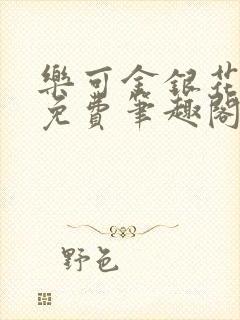 樂可金銀花
免費筆趣閣
野色